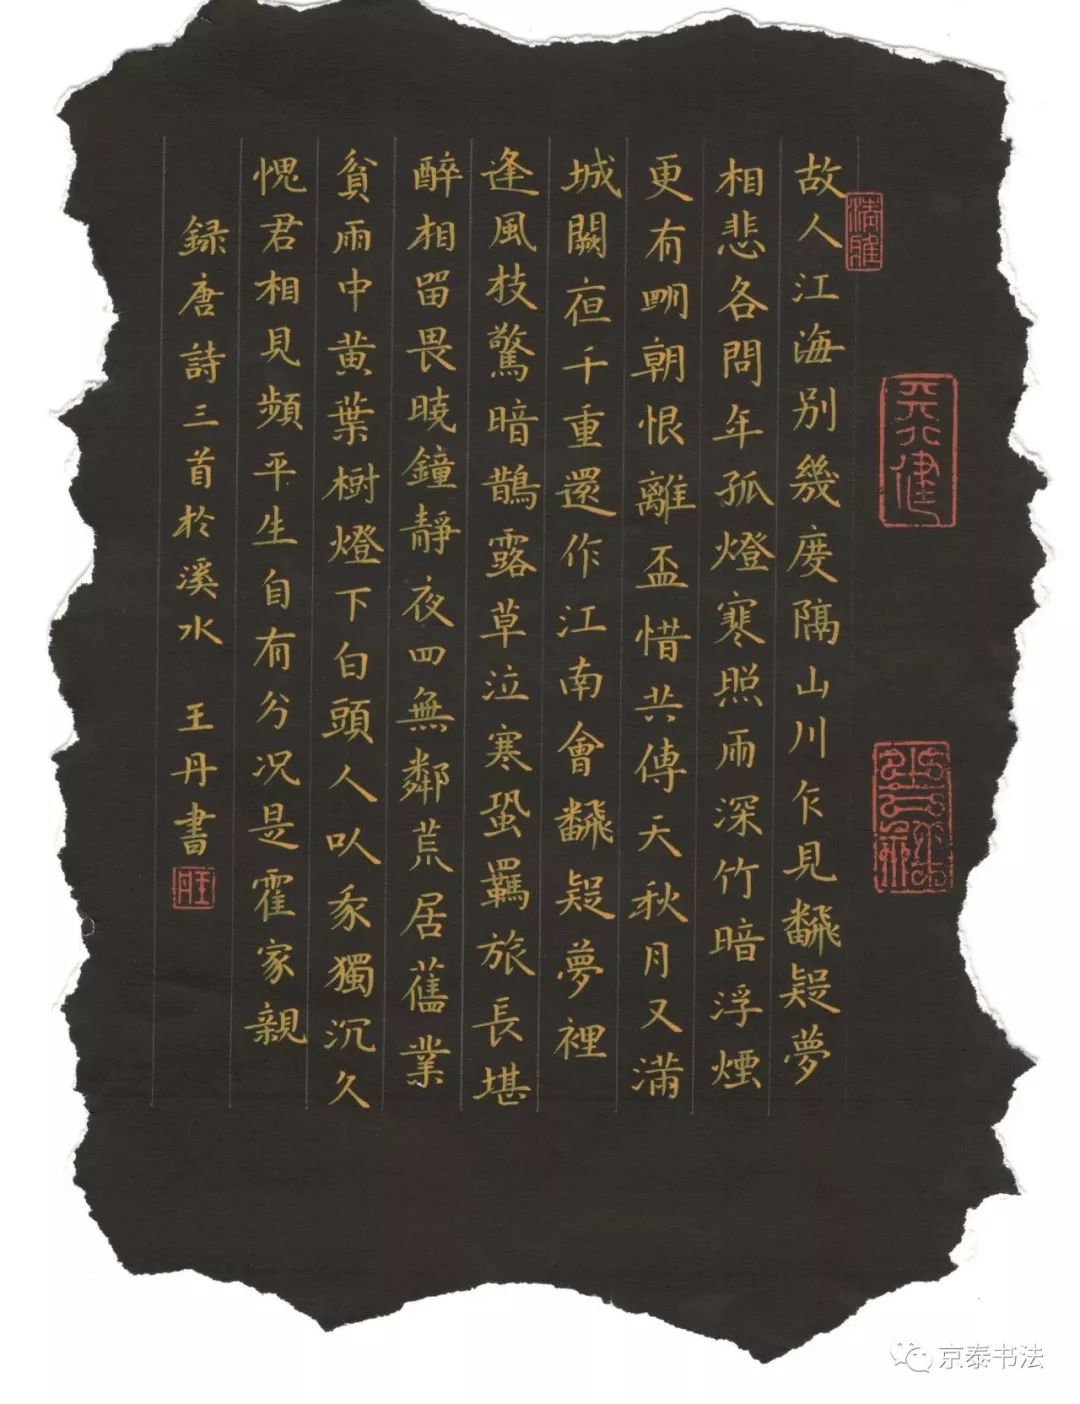 故人江海別幾度隔山川乍見飜疑夢
相悲各問年孤燈寒照雨深竹暗浮煙
更有明朝恨離盃惜共傳天秋月又滿
城闕夜千重還作江南會飜疑夢裡
逢風枝驚暗鵲露草泣寒蛩羈旅長堪
醉相留畏曉鐘靜夜四無鄰荒居舊業
貧雨中黄葉樹燈下白頭人以我獨沉久
愧君相見頻平生自有分況是霍家親
録唐詩三首於溪水 王丹書
清雅
天行健
京泰书法